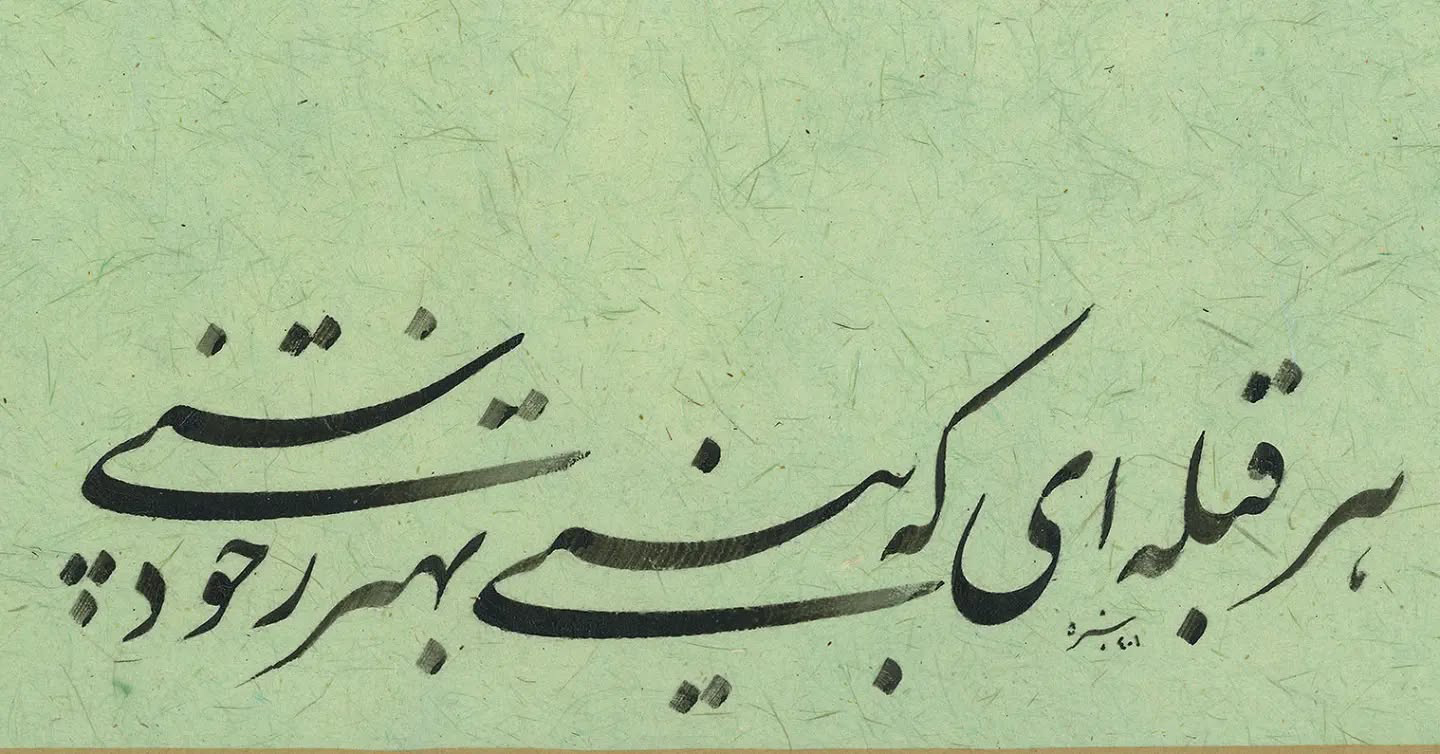 هر قبله ای که بینی بهتر ز خود پرستی